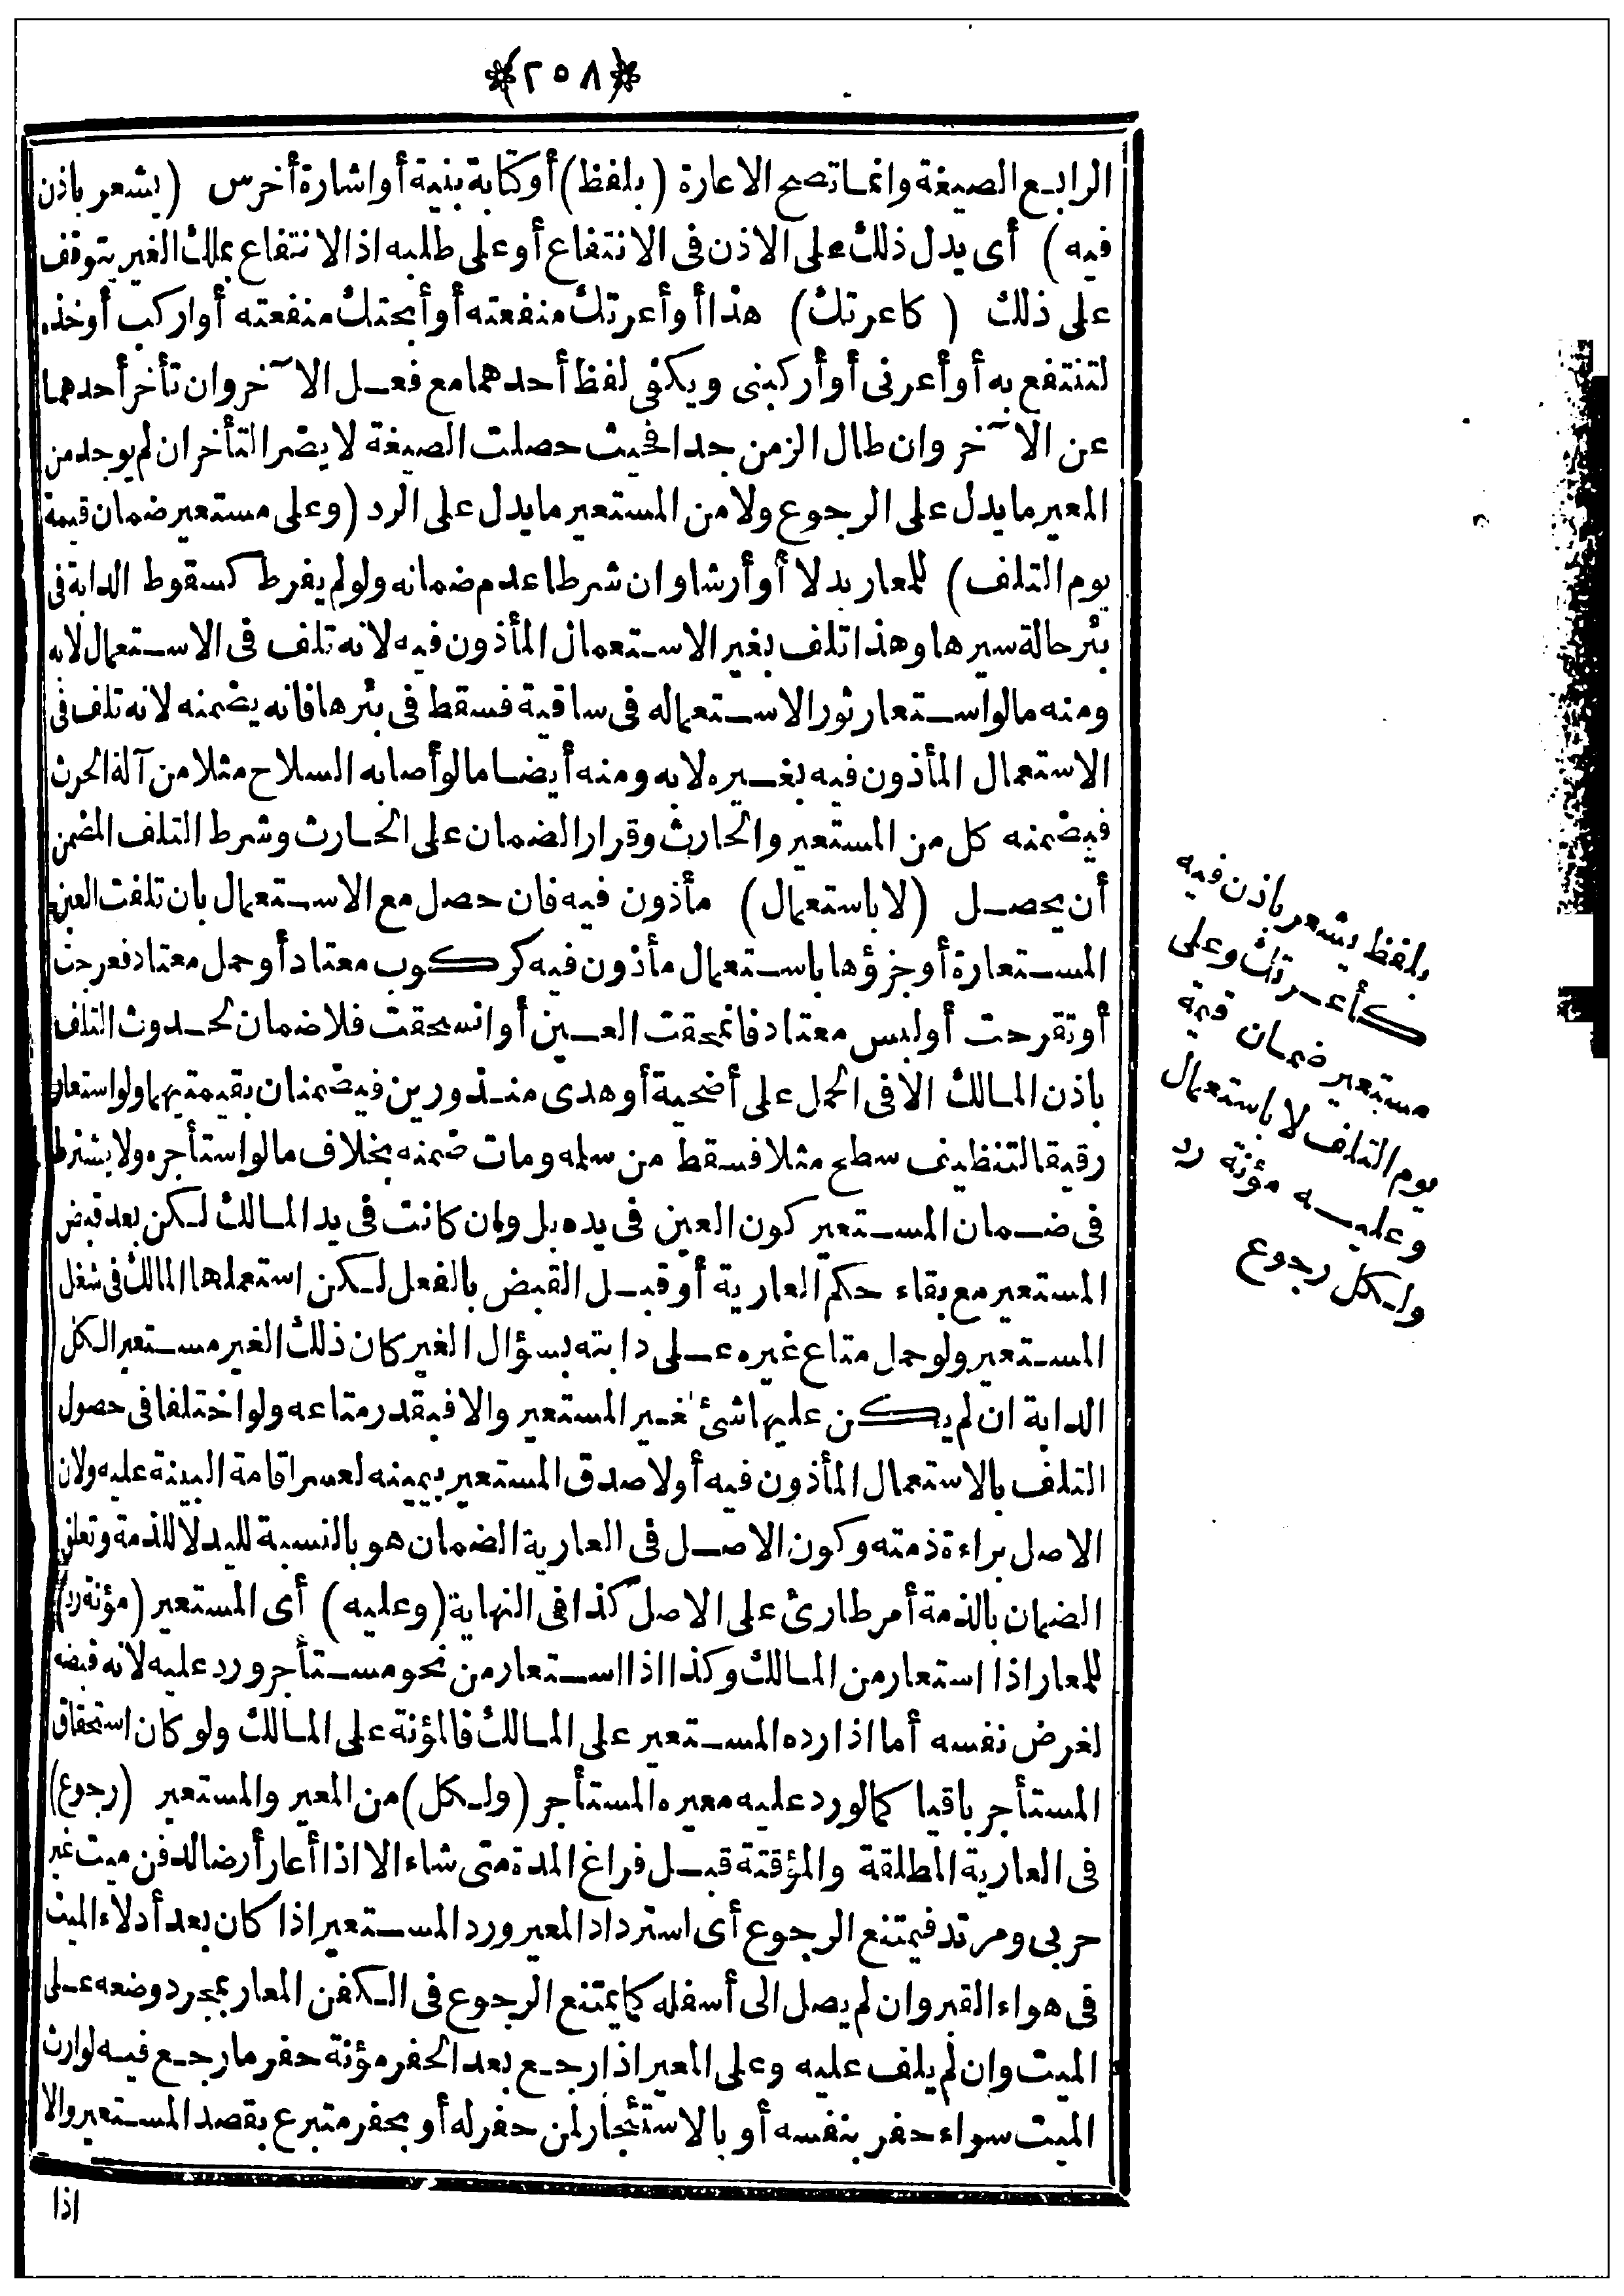 ﴿٢٥٨﴾
الرابع الصيغة وانما تصح الاعارة (بلفظ) أو كتابة بنية أو اشارة أخرس (يشعر باذن
فيه) أى يدل ذلك على الاذن فى الانتفاع أو على طلبه اذ الانتفاع بملك الغير يتوقف
على ذلك (كاعرتك) هذا أو أعرتك منفعته أو أبحتك منفعته أو اركب أو خذه
لتنتفع به أو أعرنى أو أركبنى ويكفى لفظ أحدهما مع فعل الآخر وان تأخر أحدهما
عن الآخر وان طال الزمن جدا فحيث حصلت الصيغة لا يضر التأخر ان لم يوجد من
المعير ما يدل على الرجوع ولا من المستعير ما يدل على الرد (وعلى مستعير ضمان قيمة
يوم التلف) للمعار بدلا أو أرشا وان شرطا عدم ضمانه ولو لم يفرط كسقوط الدابة فى
بئر حالة سيرها وهذا تلف بغير الاستعمال المأذون فيه لانه تلف فى الاستعمال لا به
ومنه ما لو استعار ثور الاستعماله فى ساقية فسقط فى بئرها فانه يضمنه لانه تلف فى
الاستعمال المأذون فيه بغيره لا به ومنه أيضا ما لو أصابه السلاح مثلا من آلة الحرث
فيضمنه كل من المستعير والحارث وقرار الضمان على الحارث وشرط التلف المضمن
أن يحصل (لا باستعمال) مأذون فيه فان حصل مع الاستعمال بان تلفت العين
المستعارة أو جزؤها باستعمال مأذون فيه كركوب معتاد أو حمل معتاد فعرجت
أو تقرحت أو لبس معتاد فانمحقت العين أو انسحقت فلا ضمان لحدوث التلف
باذن المالك الا فى الحمل على أضحية أو هدى منذورين فيضمنان بقيمتهما ولو استعار
رقيقا لتنظيف سطح مثلا فسقط من سلمه ومات ضمنه بخلاف ما لو استأجره ولا يشترط
فى ضمان المستعير كون العين فى يده بل وان كانت فى يد المالك لكن بعد قبض
المستعير مع بقاء حكم العارية أو قبل القبض بالفعل لكن استعملها المالك فى شغل
المستعير ولو حمل متاع غيره على دابته بسؤال الغير كان ذلك الغير مستعير الكل
الدابة ان لم يكن عليها شئ لغير المستعير والا فبقدر متاعه ولو اختلفا فى حصول
التلف بالاستعمال المأذون فيه أو لا صدق المستعير بيمينه لعسر اقامة البينة عليه ولان
الاصل براءة ذمته وكون الاصل فى العارية الضمان هو بالنسبة لليد لا للذمة وتعلق
الضمان بالذمة أمر طارئ على الاصل كذا فى النهاية (وعليه) أى المستعير (مؤنة رد)
للمعار اذا استعار من المالك وكذا اذا استعار من نحو مستأجر ورد عليه لانه قبضه
لغرض نفسه أما اذا رده المستعير على المالك فالمؤنة على المالك ولو كان استحقاق
المستأجر باقيا كما لو رد عليه معيره المستأجر (ولكل) من المعير والمستعير (رجوع)
فى العارية المطلقة والمؤقتة قبل فراغ المدة متى شاء الا اذا أعار أرضا لدفن ميت غير
حربى ومرتد فيمتنع الرجوع أى استرداد المعير ورد المستعير اذا كان بعد أدلاء الميت
فى هواء القبر وان لم يصل الى أسفله كما يمتنع الرجوع فى الكفن المعار بمجرد وضعه على
الميت وان لم يلف عليه وعلى المعير اذا رجع بعد الحفر مؤنة حفر ما رجع فيه لوارث
الميت سواء حفر بنفسه أو بالاستئجار لمن حفر له أو بحفر متبرع بقصد المستعير والا
اذا
بلفظ يشعر باذن فيه
كأعرتك وعلى
مستعير ضمان قيمة
يوم التلف لا باستعمال
وعليه مؤنة رد
ولكل رجوع